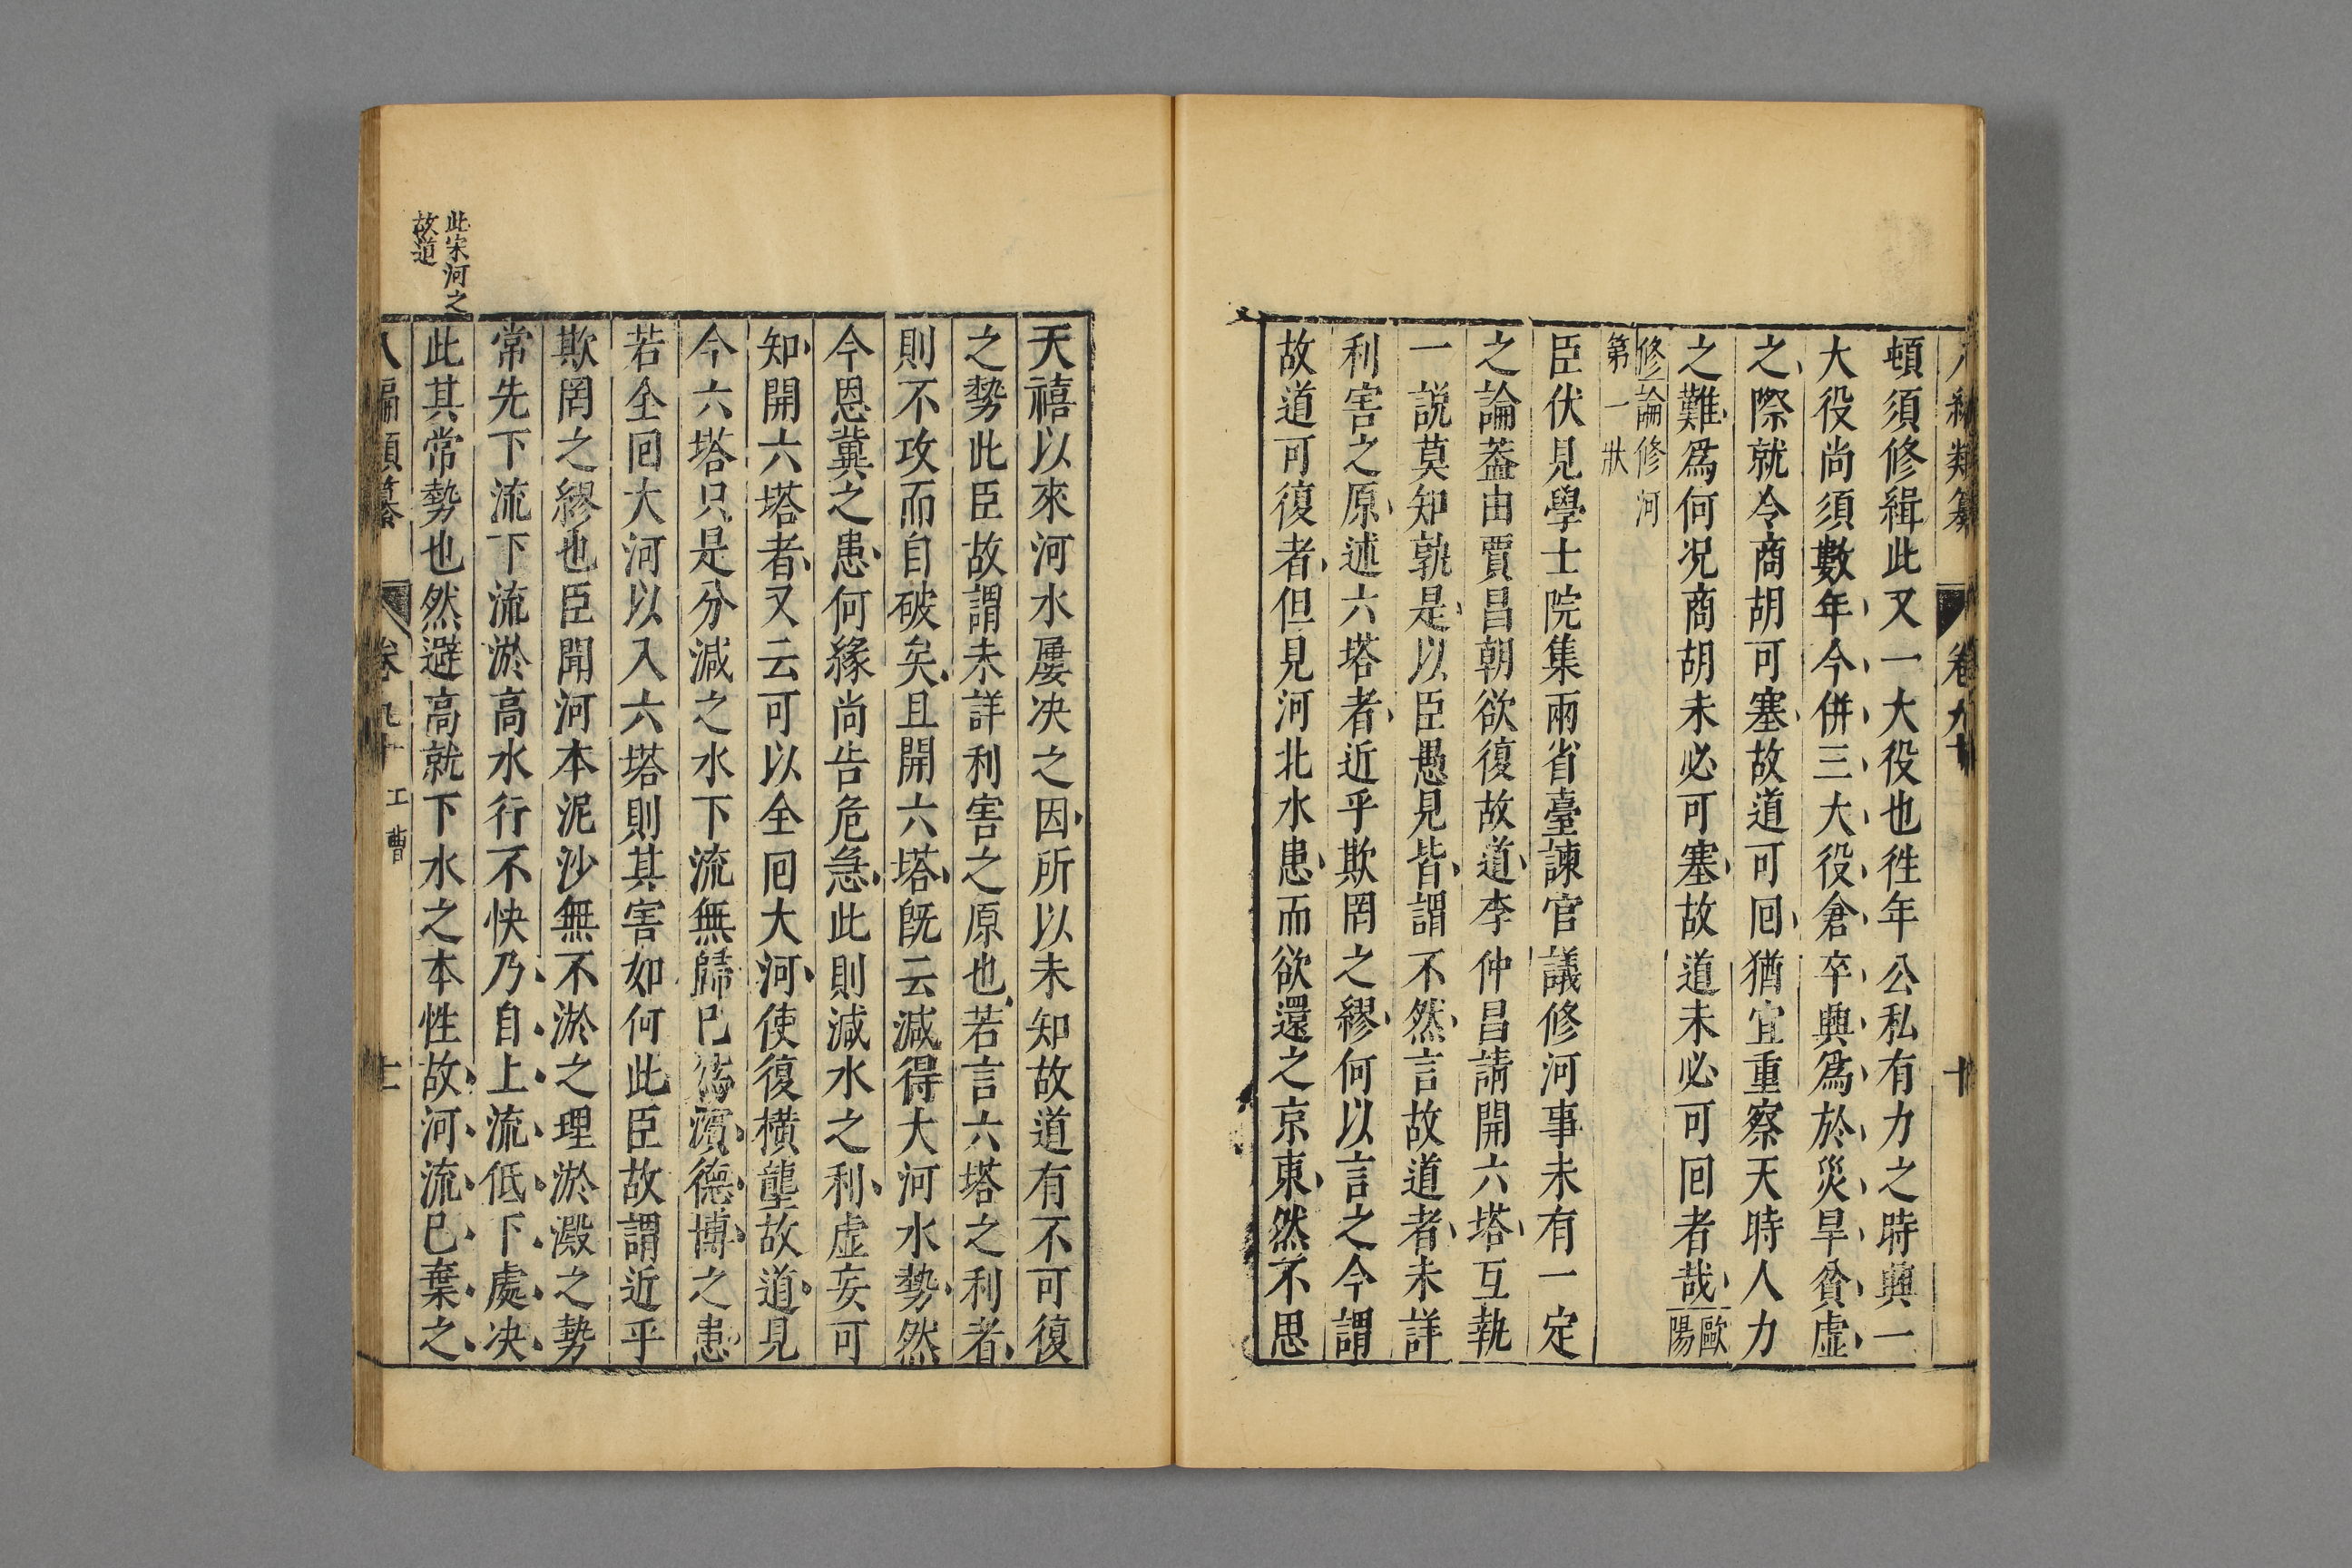 八編類纂 卷九十 十
頓須修緝此又一大役也徃年公私有力之時興一
大役尚須數年今併三大役倉卒興爲於災旱貧虛
之際就令商胡可塞故道可回猶宜重察天時人力
之難爲何况商胡未必可塞故道未必可回者哉歐陽
修論修河
第一狀
臣伏見學士院集兩省臺諫官議修河事未有一定
之論葢由賈昌朝欲復故道李仲昌請開六塔互執
一説莫知孰是以臣愚見皆謂不然言故道者未詳
利害之原述六塔者近乎欺罔之繆何以言之今謂
故道可復者但見河北水患而欲還之京東然不思
天禧以來河水屢决之因所以未知故道有不可復
之勢此臣故謂未詳利害之原也若言六塔之利者
則不攻而自破矣且開六塔旣云減得大河水勢然
今恩冀之患何緣尚告危急此則減水之利虛妄可
知開六塔者又云可以全回大河使復橫壟故道見
今六塔只是分減之水下流無歸巳爲濱德博之患
若全回大河以入六塔則其害如何此臣故謂近乎
欺罔之繆也臣聞河本泥沙無不淤之理淤澱之勢
常先下流下流淤高水行不快乃自上流低下處决
此宋河之
故道
此其常勢也然避高就下水之本性故河流巳棄之
八編類纂 卷九十 工曹 十一